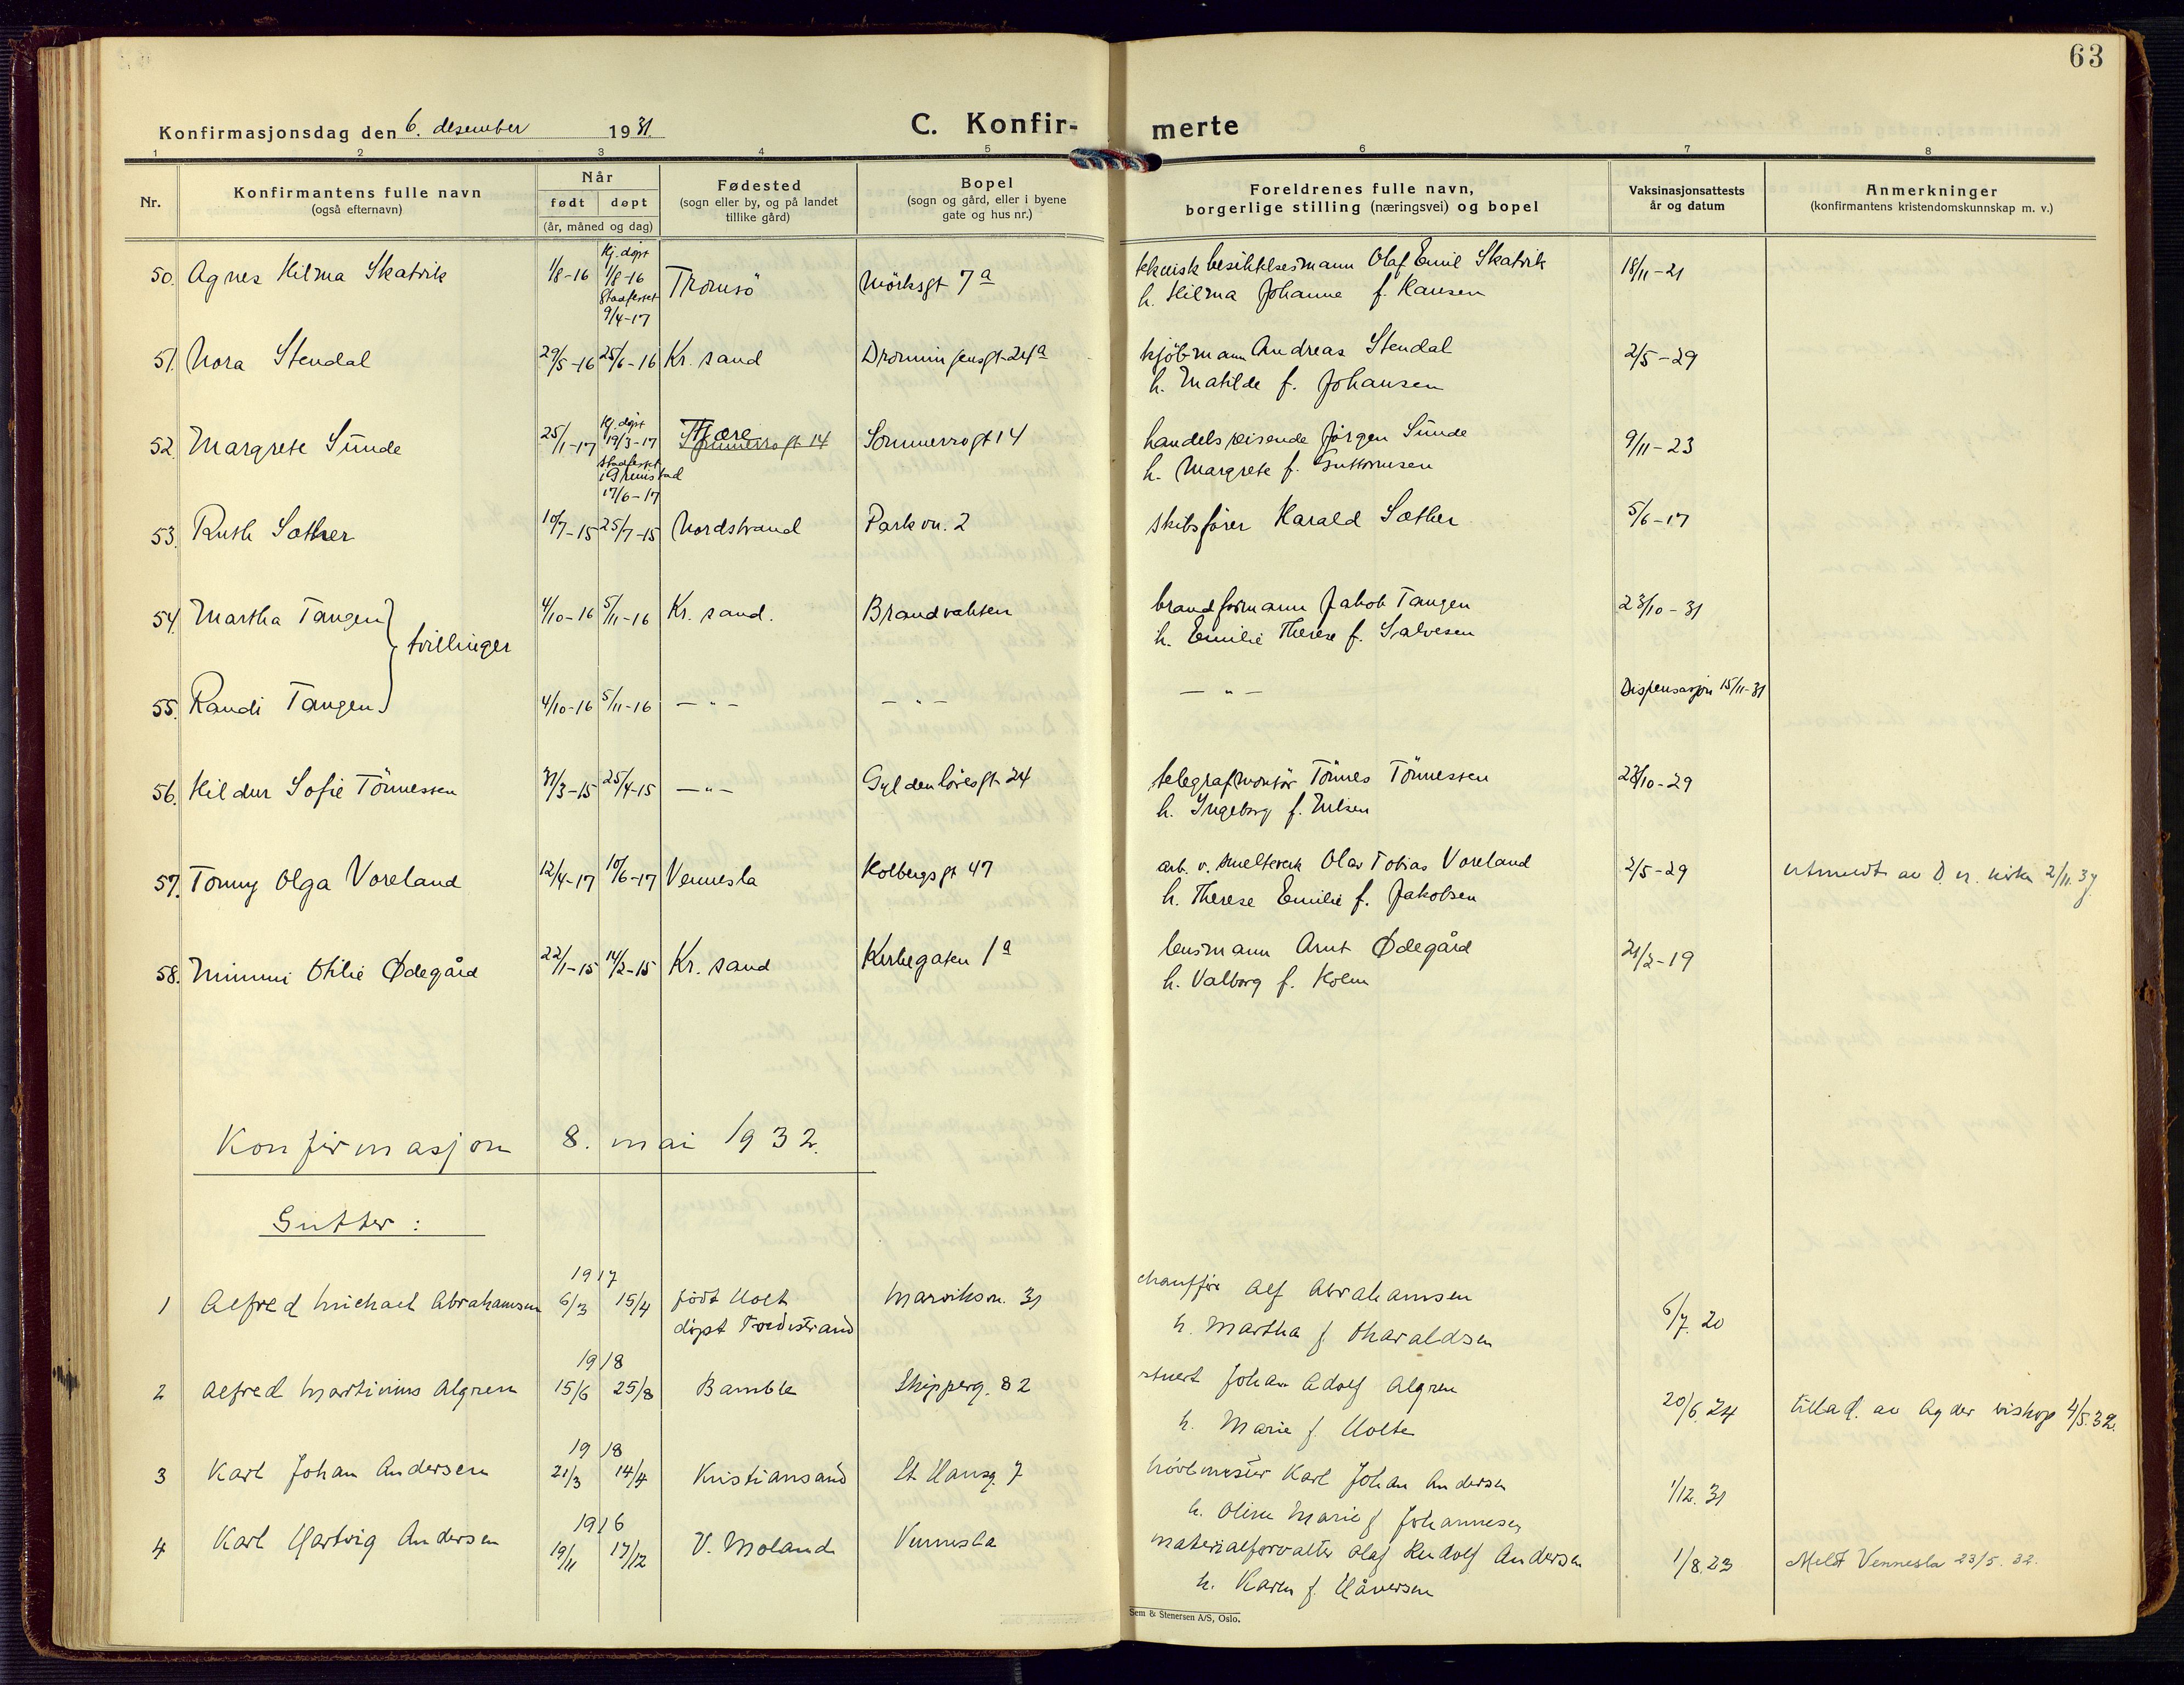 63
Konfirmasjonsdag den 6. desember 1931.
C. Konfir- merte
1 2 3 4 5 6 7 8
Nr.
Konfirmantens fulle navn
(også efternavn)
Når
født døpt
(år, måned og dag)
Fødested
(sogn eller by, og på landet
tillike gård)
Bopel
(sogn og gård, eller i byene
gate og hus nr.)
Foreldrenes fulle navn,
borgerlige stilling (næringsvei) og bopel
Vaksinasjonsattests
år og datum
Anmerkninger
(konfirmantens kristendomskunnskap m. v.)
50. Agnes Hilma Skatvik 1/8-16 Hj. døpt 1/8-16 Stadfestet 9/4-17 Tromsö Mörksgt 7a
teknisk besiktelsesmann Olaf Emil Skatvik 18/11-21
h. Hilma Johanne f. Hansen
51. Nora Stendal 29/5-16 25/6-16 Kr. sand Dronningensgt 24a
kjöbmann Andreas Stendal 2/5-29
h. Matilde f. Johansen
52. Margrete Sunde 25/1-17 Hj. døpt 19/3-17 stadfestet i Grimstad 17/6-17 Fjære Sommerrogt 14 Sommerrogt 14
handelsreisende Jörgen Sunde 9/11-23
h. Margrete f. Guttormsen
53. Ruth Sæther 10/7-15 25/7-15 Nordstrand Parkvn. 2
skibsfører Harald Sæther 5/6-17
54. Martha Tangen 4/10-16 5/11-16 Kr. sand. Brandvakten
tvillinger
brandformann Jakob Tangen 23/10-31
h. Emilie Therese f. Salvesen
55. Randi Tangen 4/10-16 5/11-16 — " — — " —
— " — Dispensasjon 15/11-31
56. Hildur Sofie Tönnessen 31/3-15 25/4-15 — " — Gyldenlövesgt 24
telegrafmontör Tönnes Tönnessen 23/10-29
h. Ingeborg f. Nilsen
57. Tonny Olga Voreland 12/4-17 10/6-17 Vennesla Holbergsgt 47
arb. v. smelteverk Olav Tobias Voreland 2/5-29 utmeldt av D. n. kirke 2/11.37
h. Therese Emilie f. Jakobsen
58. Mimmi Otilie Ødegård 22/1-15 14/2-15 Kr. sand Kirkegaten 1a
lensmann Arnt Ødegård 21/2-19
h. Valborg f. Holm
Konfirmasjon 8. mai 1932.
Gutter:
1917
1 Alfred Michael Abrahamsen 6/3 15/4 født Holt Marviksvn. 31
døpt Tvedestrand
chauffør Alf Abrahamsen 6/7. 20
h. Martha f. Charaldsen
1918
2 Alfred Martinius Algren 15/6 25/8 Bamble Skipperg. 82
stuert Johan Adolf Algren 20/6. 24 tillad. av Agder biskop 4/5.32.
h. Marie f. Holte
1918
3 Karl Johan Andersen 21/3 14/4 Kristiansand St Hansg. 7
hövlmester Karl Johan Andersen 1/12. 31
h. Oline Marie f. Johannesen
1916
4 Karl Hartvig Andersen 19/11 17/12 V. Moland Vennesla
materialforvalter Olaf Rudolf Andersen 1/8. 23 Meldt Vennesla 23/5. 32.
h. Karen f. Håversen
Sem & Stenersen A/S, Oslo.